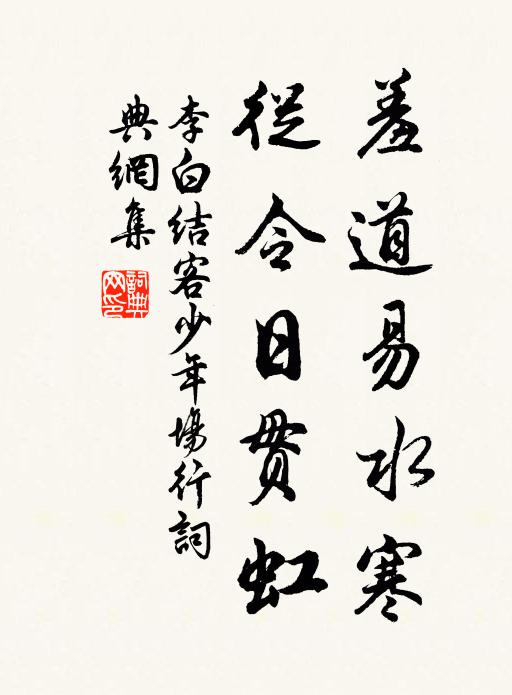 羞道易水寒
從令日貫虹
李白結客少年場行詞
典網集
詞典
網印